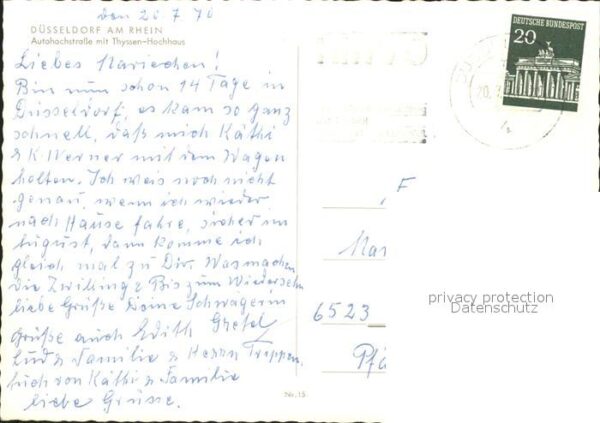 den 20.7 70
DÜSSELDORF AM RHEIN
Autohochstraße mit Thyssen-Hochhaus
Liebes Mariechen!
Bin nun schon 14 Tage in
Düsseldorf, es kam so ganz
schnell, daß mich Käthi
& K. Werner mit dem Wagen
holten. Ich weis noch nicht
genau, wenn ich wieder
nach Hause fahre, sicher im
August, dann komme ich
gleich mal zu Dir. Was machen
die Zwillinge Bis zum Wiedersehn
liebe Grüße Deine Schwägerin
Grüße auch Edith Gretel
& Familie & Herrn
von Käthi & Familie
liebe Grüsse.
Nr. 15
DEUTSCHE BUNDESPOST
20
20.
F
Mar
6523
Pfa
privacy protection
Datenschutz